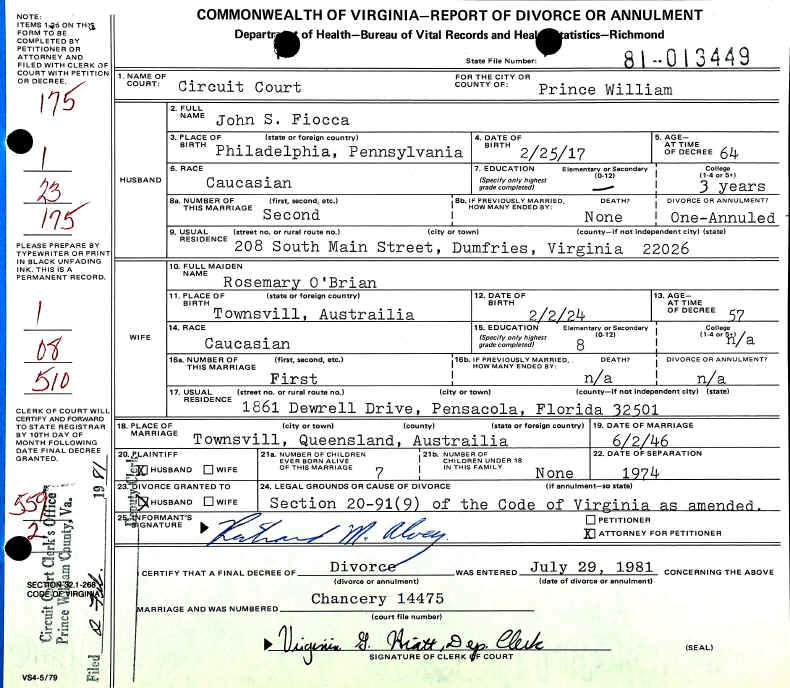 COMMONWEALTH OF VIRGINIA—REPORT OF DIVORCE OR ANNULMENT
Department of Health—Bureau of Vital Records and Health Statistics—Richmond
State File Number: 81-013449
NOTE:
ITEMS 1-26 ON THIS
FORM TO BE
COMPLETED BY
PETITIONER OR
ATTORNEY AND
FILED WITH CLERK OF
COURT WITH PETITION
OR DECREE.
175
1
23
175
PLEASE PREPARE BY
TYPEWRITER OR PRINT
IN BLACK UNFADING
INK. THIS IS A
PERMANENT RECORD.
1
08
510
CLERK OF COURT WILL
CERTIFY AND FORWARD
TO STATE REGISTRAR
BY 10TH DAY OF
MONTH FOLLOWING
DATE FINAL DECREE
GRANTED.
559
2
SECTION 32.1-268
CODE OF VIRGINIA
Circuit Court Clerk's Office
Prince William County, Va.
Filed 1981
Deputy Clerk
VS4-5/79
1. NAME OF COURT: Circuit Court FOR THE CITY OR COUNTY OF: Prince William
HUSBAND
2. FULL NAME John S. Fiocca
3. PLACE OF BIRTH (state or foreign country) Philadelphia, Pennsylvania 4. DATE OF BIRTH 2/25/17 5. AGE— AT TIME OF DECREE 64
6. RACE Caucasian 7. EDUCATION (Specify only highest grade completed) Elementary or Secondary (0-12) — College (1-4 or 5+) 3 years
8a. NUMBER OF THIS MARRIAGE (first, second, etc.) Second 8b. IF PREVIOUSLY MARRIED, HOW MANY ENDED BY: DEATH? None DIVORCE OR ANNULMENT? One-Annuled
9. USUAL RESIDENCE (street no. or rural route no.) (city or town) (county—if not independent city) (state)
208 South Main Street, Dumfries, Virginia 22026
WIFE
10. FULL MAIDEN NAME Rosemary O'Brian
11. PLACE OF BIRTH (state or foreign country) Townsvill, Austrailia 12. DATE OF BIRTH 2/2/24 13. AGE— AT TIME OF DECREE 57
14. RACE Caucasian 15. EDUCATION (Specify only highest grade completed) Elementary or Secondary (0-12) 8 College (1-4 or 5+) n/a
16a. NUMBER OF THIS MARRIAGE (first, second, etc.) First 16b. IF PREVIOUSLY MARRIED, HOW MANY ENDED BY: DEATH? n/a DIVORCE OR ANNULMENT? n/a
17. USUAL RESIDENCE (street no. or rural route no.) (city or town) (county—if not independent city) (state)
1861 Dewrell Drive, Pensacola, Florida 32501
18. PLACE OF MARRIAGE (city or town) (county) (state or foreign country) Townsvill, Queensland, Austrailia 19. DATE OF MARRIAGE 6/2/46
20. PLAINTIFF X HUSBAND WIFE 21a. NUMBER OF CHILDREN EVER BORN ALIVE OF THIS MARRIAGE 7 21b. NUMBER OF CHILDREN UNDER 18 IN THIS FAMILY None 22. DATE OF SEPARATION 1974
23. DIVORCE GRANTED TO X HUSBAND WIFE 24. LEGAL GROUNDS OR CAUSE OF DIVORCE (if annulment—so state)
Section 20-91(9) of the Code of Virginia as amended.
25. INFORMANT'S SIGNATURE M. Alvey PETITIONER
X ATTORNEY FOR PETITIONER
I CERTIFY THAT A FINAL DECREE OF Divorce WAS ENTERED July 29, 1981 CONCERNING THE ABOVE
(divorce or annulment) (date of divorce or annulment)
MARRIAGE AND WAS NUMBERED Chancery 14475
(court file number)
Virginia G. Hiatt, Dep. Clerk
SIGNATURE OF CLERK OF COURT (SEAL)